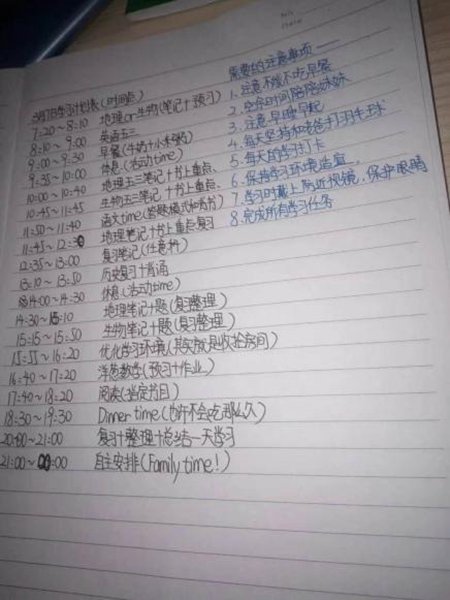 3月7日学习计划表(时间点)
7:20~8:10 地理or生物(笔记+预习)
8:10~9:00 英语五三
9:00~9:30 早餐(牛奶+小米粥)
9:35~10:00 休息(活动time)
10:00~10:40 地理五三笔记+书上重点
10:45~11:45 生物五三笔记+书上重点
11:50~11:40 语文time(答题模式和书)
11:45~12:30 地理笔记+书上重点复习
12:35~13:00 复习笔记(任意科)
13:10~13:50 历史复习+背诵
14:00~14:30 休息(活动time)
14:30~15:10 地理笔记+题(复习整理)
15:15~15:50 生物笔记+题(复习整理)
15:55~16:20 优化学习环境(其实就是收拾房间)
16:40~17:20 洋葱数学(预习+作业)
17:40~18:20 阅读(指定书目)
18:30~19:30 Dinner time(也许不会吃那么久)
20:00~21:00 复习+整理+总结一天学习
21:00~00:00 自主安排(Family time!)
需要的注意事项——
1.注意不可不吃早餐
2.空余时间陪陪妹妹
3.注意早睡早起
4.每天坚持和爸爸打羽毛球
5.每天的学习打卡
6.保持学习环境适宜
7.学习时戴上防近视镜,保护眼睛
8.完成所有学习任务